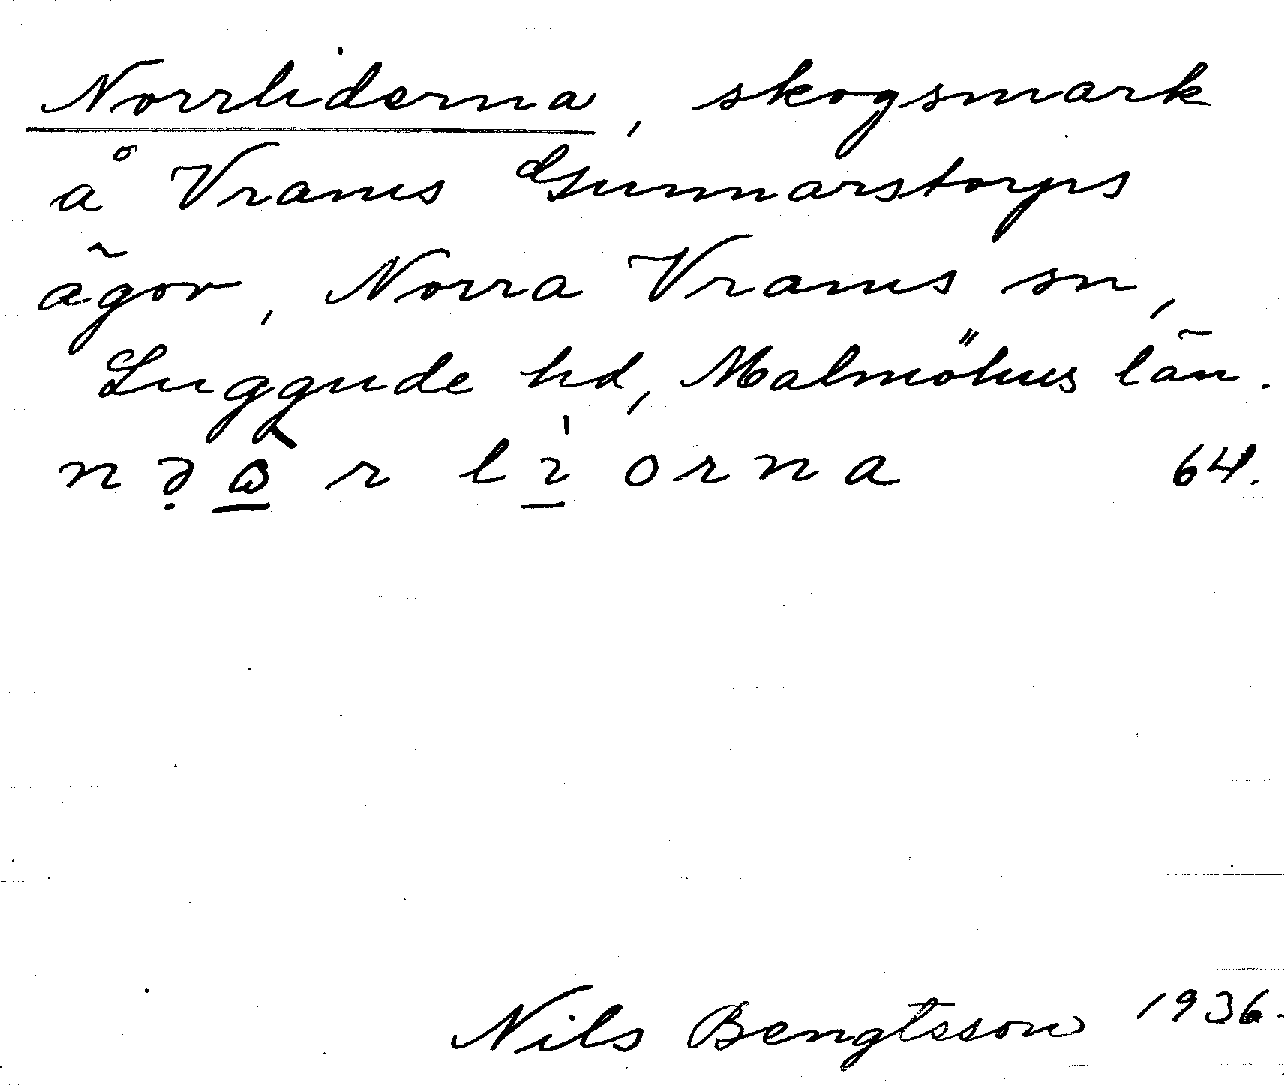 Norrliderna, skogsmark
å Vrams Gunnarstorps
ägor, Norra Vrams sn,
Luggude hd, Malmöhus län.
n ə̣ ὼ̲ r l ı̲̀ o r n a 64.
Nils Bengtsson 1936.